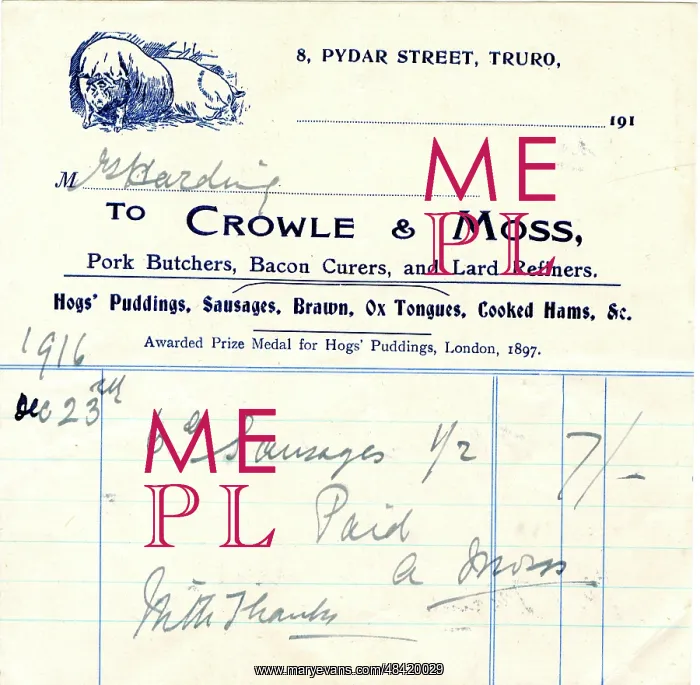 8, PYDAR STREET, TRURO,
191
Mrs Harding
TO CROWLE & MOSS,
Pork Butchers, Bacon Curers, and Lard Refiners.
Hogs' Puddings, Sausages, Brawn, Ox Tongues, Cooked Hams, &c.
Awarded Prize Medal for Hogs' Puddings, London, 1897.
1916
Dec 23rd
6 lb Sausages 1/2 7/-
Paid
A Moss
With Thanks
ME
PL
ME
PL
www.maryevans.com/48420029